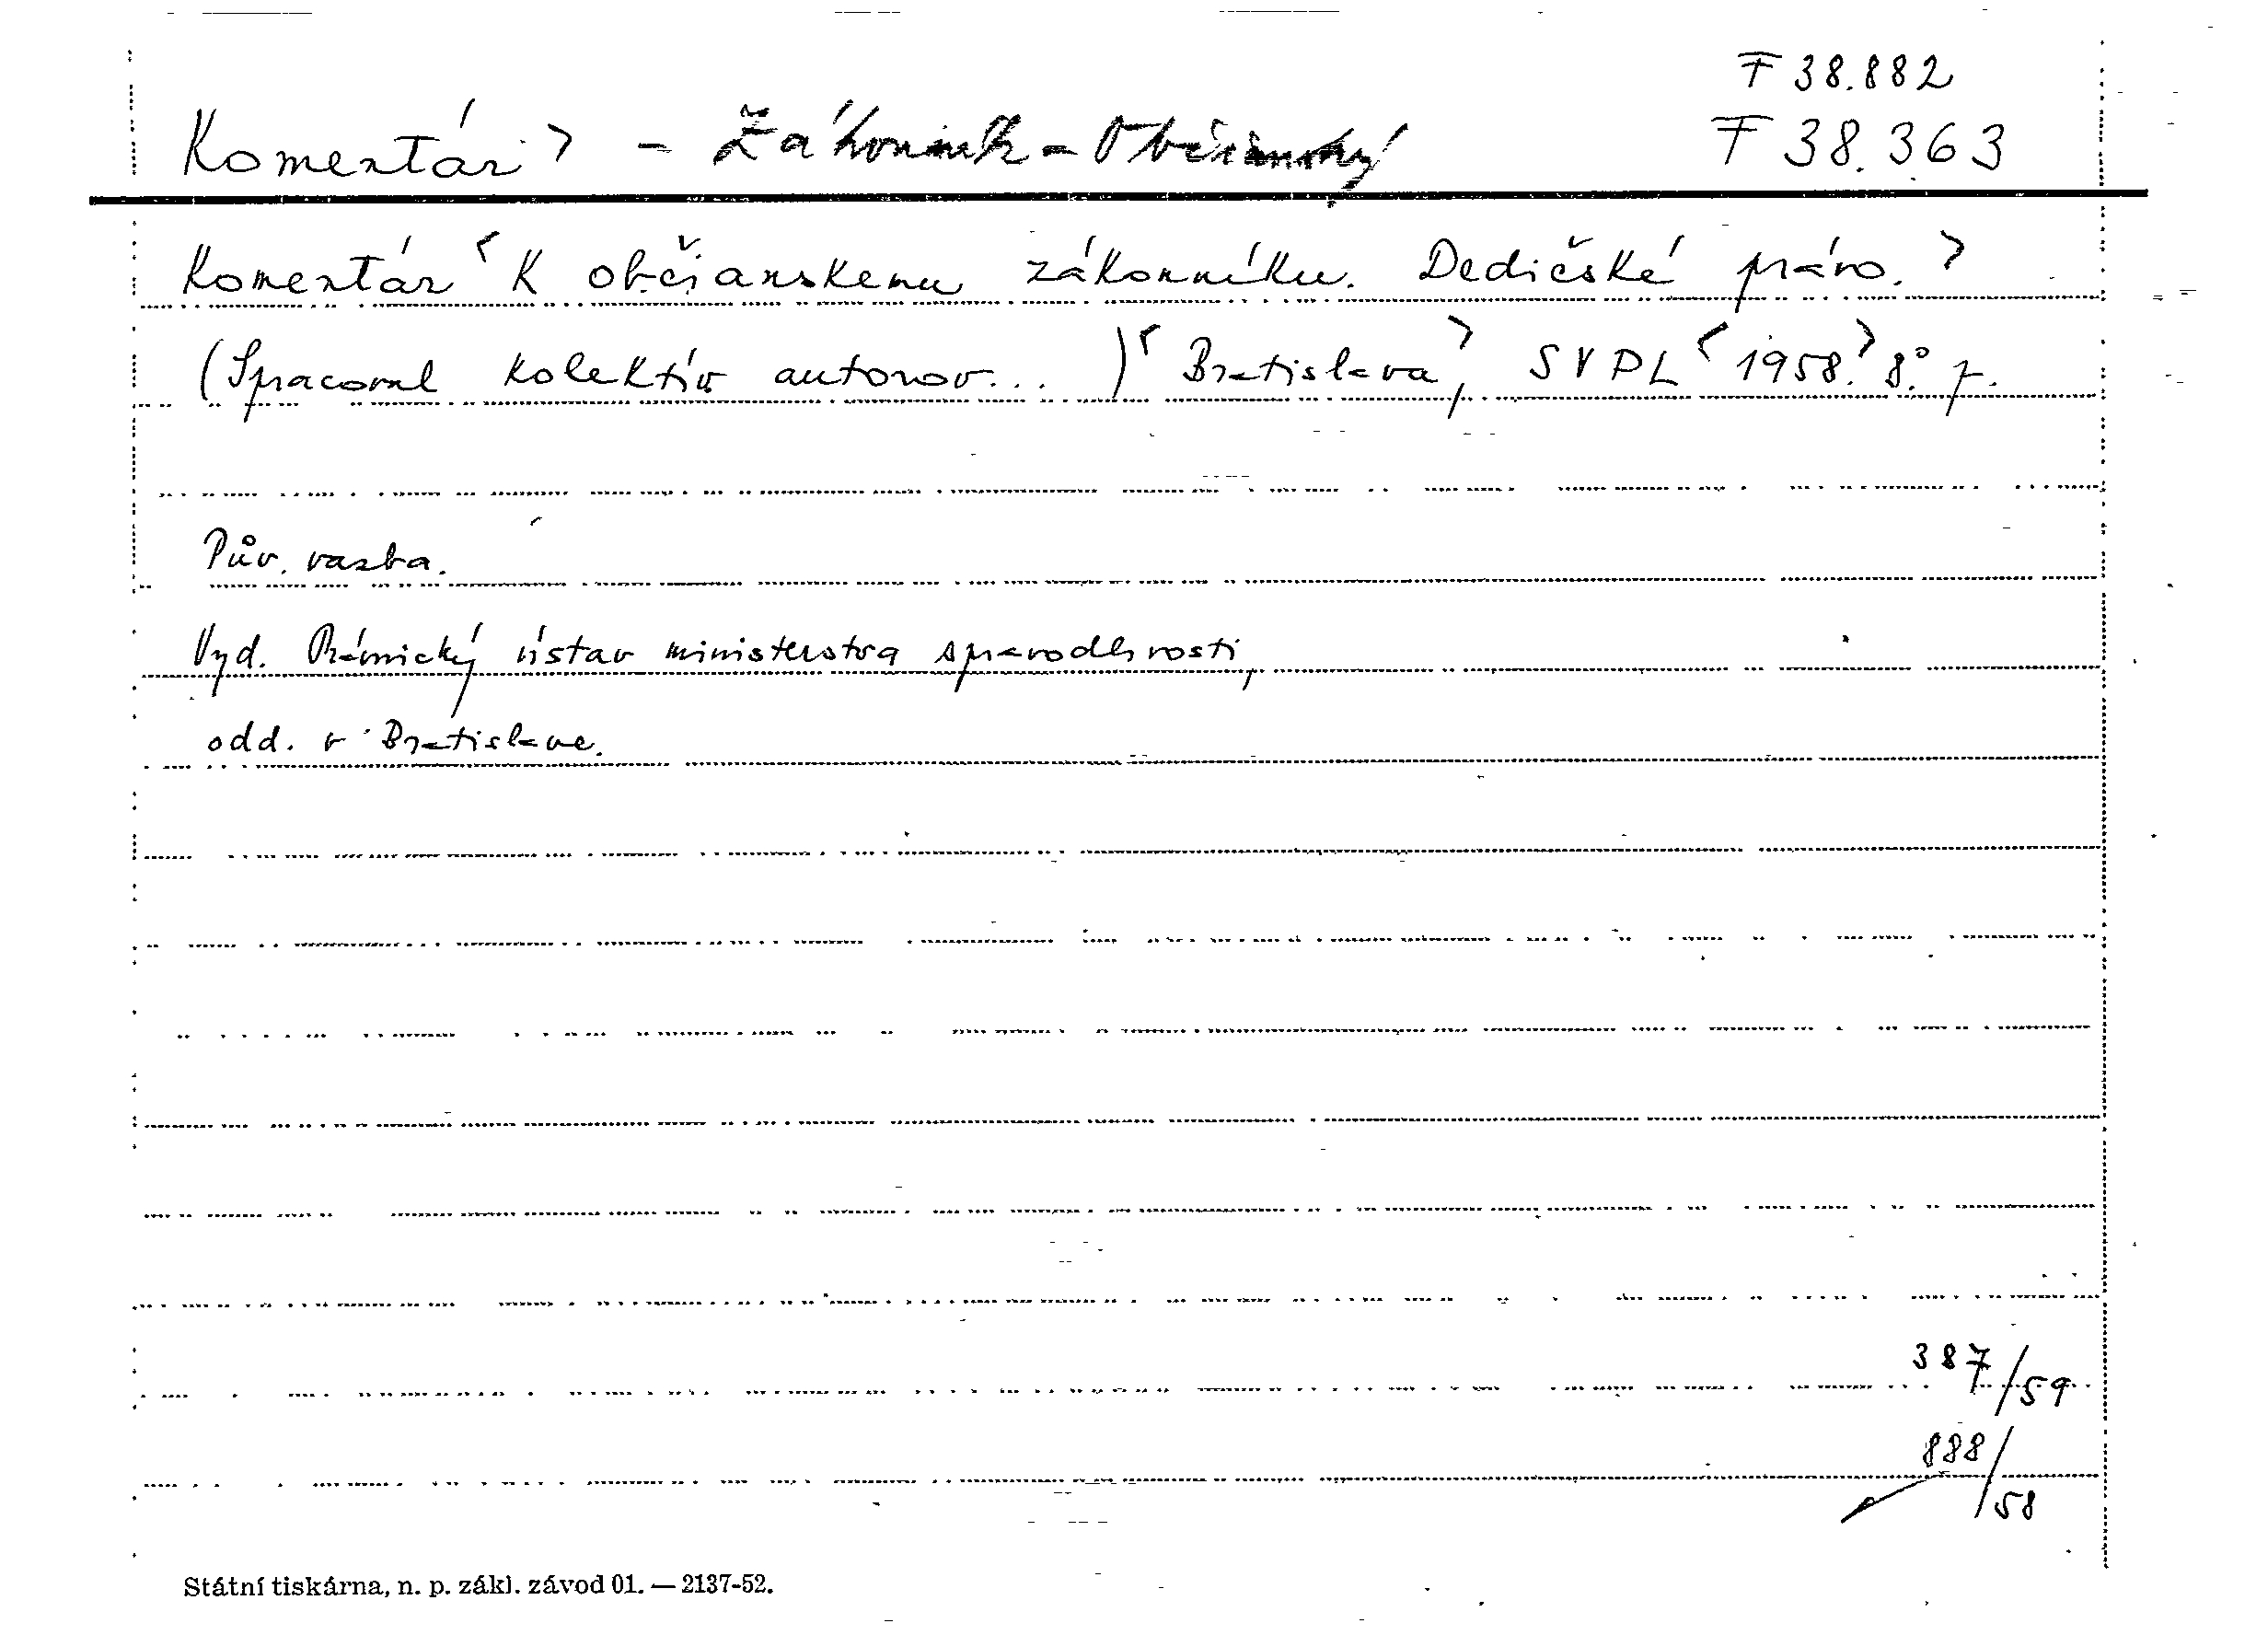 F 38.882
Komentár > - Zákonník - Občiansky
F 38.363
Komentár < K občianskemu zákonníku. Dedičské právo. >
(Spracoval kolektív autorov... ) < Bratislava, > SVPL < 1958. > 8°. 7.
Pův. vazba.
Vyd. Právnický ústav ministerstva spravodlivosti,
odd. v Bratislave.
387/59
888/58
Státní tiskárna, n. p. zákl. závod 01. — 2137-52.